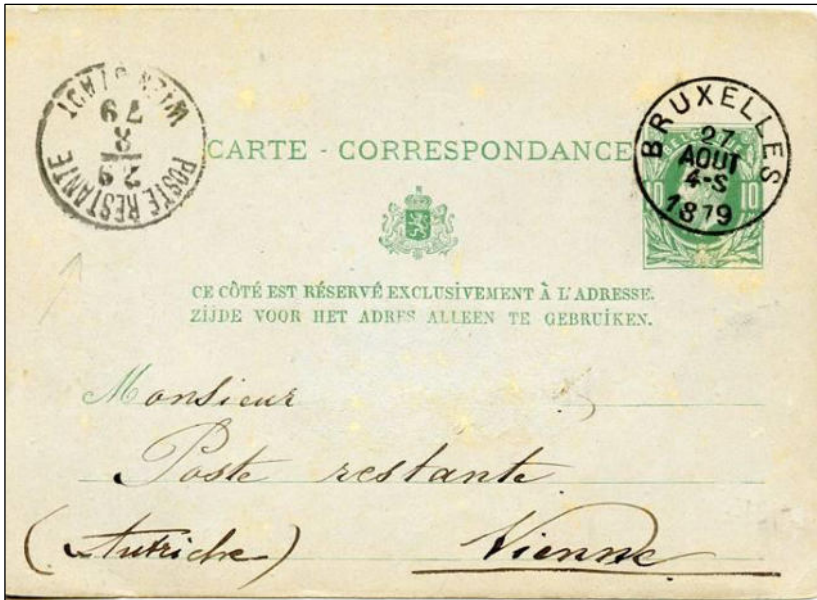 POSTE RESTANTE WIEN
29
8
79
CARTE - CORRESPONDANCE
BRUXELLES
27
AOUT
4-S
1879
BELGIQUE
10 10
CE CÔTÉ EST RÉSERVÉ EXCLUSIVEMENT À L'ADRESSE.
ZIJDE VOOR HET ADRES ALLEEN TE GEBRUIKEN.
Monsieur
Poste restante
(Autriche) Vienne